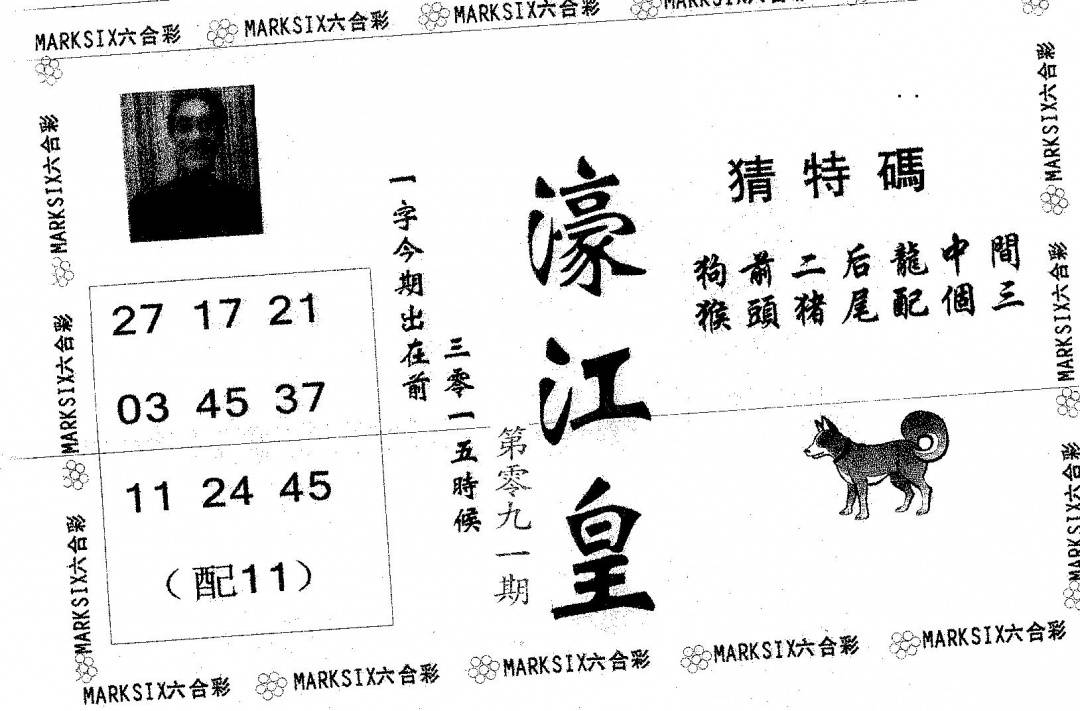 MARKSIX六合彩 MARKSIX六合彩 MARKSIX六合彩
MARKSIX六合彩
MARKSIX六合彩
MARKSIX六合彩
27 17 21
03 45 37
11 24 45
(配11)
一字今期出在前
三零一五時候
第零九一期
濠江皇
猜特碼
狗前二后龍中間
猴頭豬尾配個三
MARKSIX六合彩
MARKSIX六合彩
MARKSIX六合彩
MARKSIX六合彩 MARKSIX六合彩 MARKSIX六合彩 MARKSIX六合彩 MARKSIX六合彩